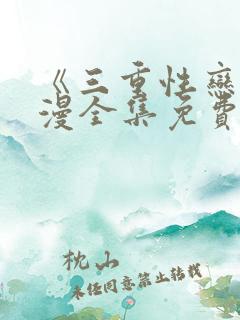 《三重性恋
漫全集免费
枕山
未经同意禁止转载